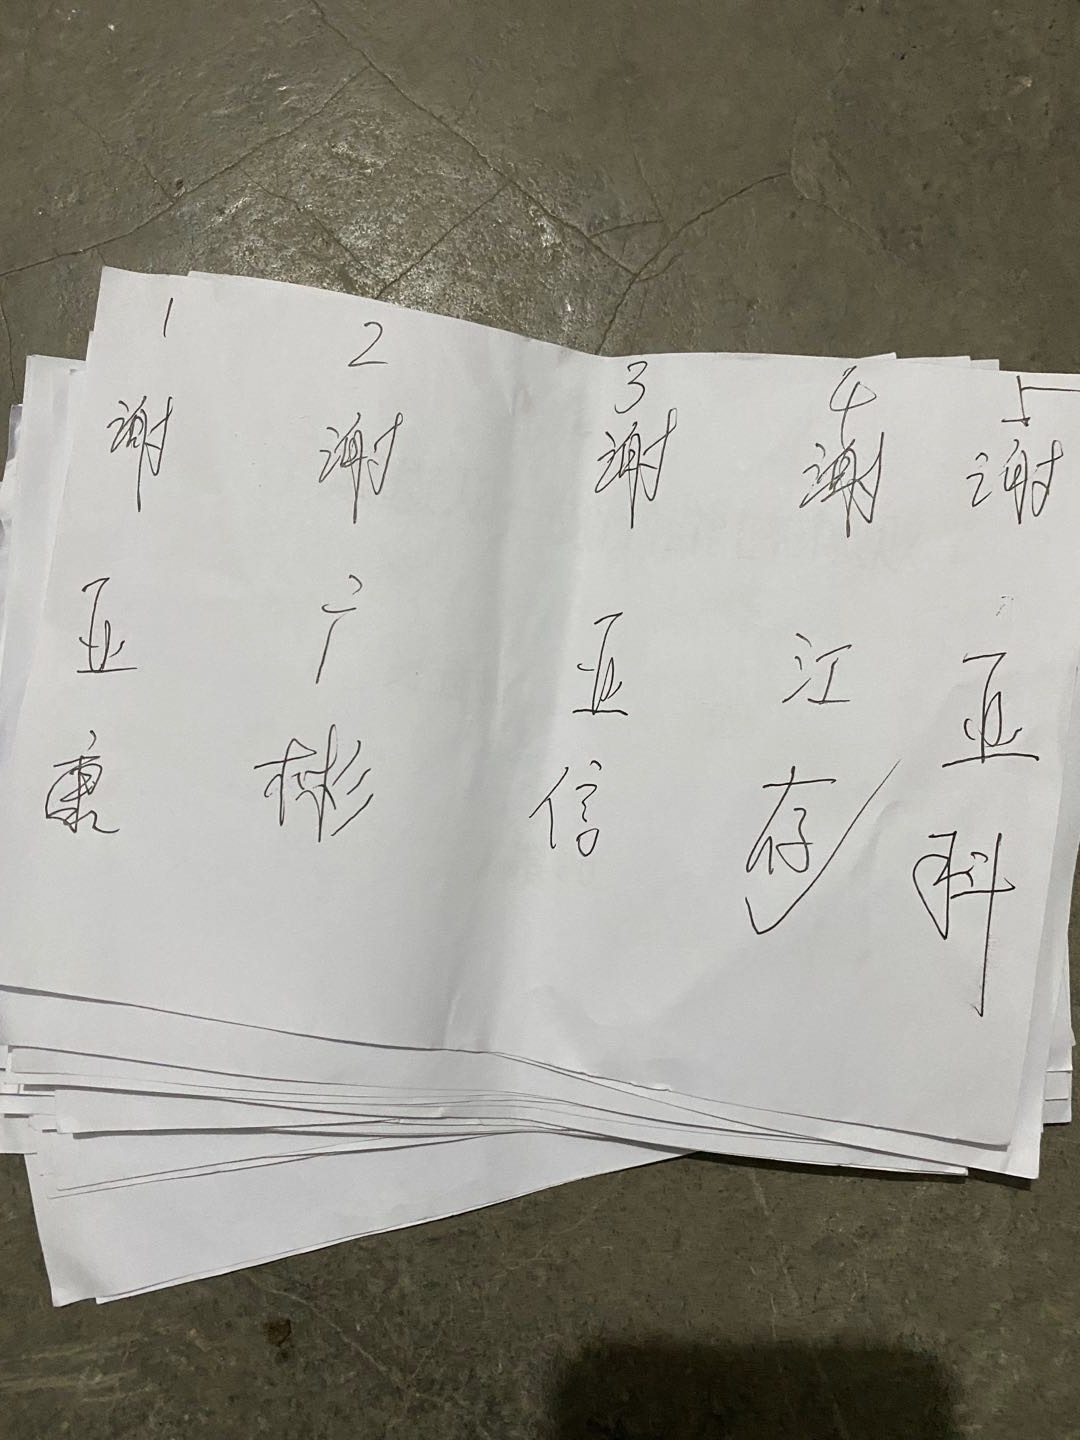 1
谢亚康
2
谢广彬
3
谢亚信
4
谢江存
5
谢亚科